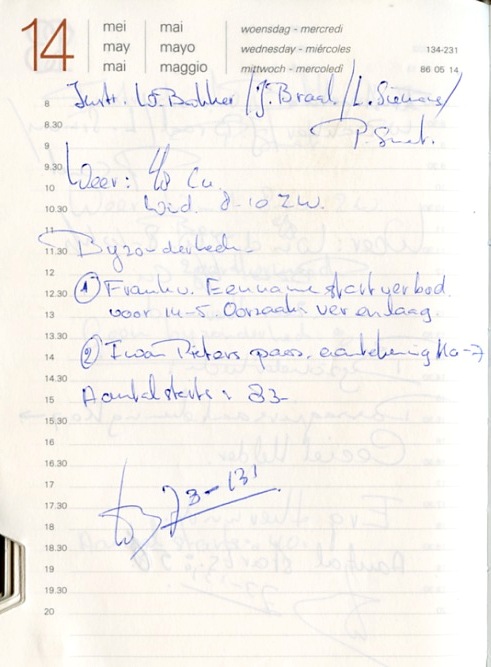 14
mei mai woensdag - mercredi
may mayo wednesday - miércoles 134-231
mai maggio mittwoch - mercoledì 86 05 14
8 Instr. W. Bakker / J. Braal / L. Siemons /
8.30
9 P. Smet.
9.30 Weer: Cu.
10
10.30 Wind. 8-10 ZW.
11
11.30 Byzonderheden
12
12.30 ① Frank v. Eename startverbod
13 voor 14-5. Oorzaak: ver en laag.
13.30
14 ② Iwan Pieters pass. aantekening Ka-7
14.30
15 Aantal starts: 83-
15.30
16
16.30
17 73-131
17.30
18
18.30
19
19.30
20